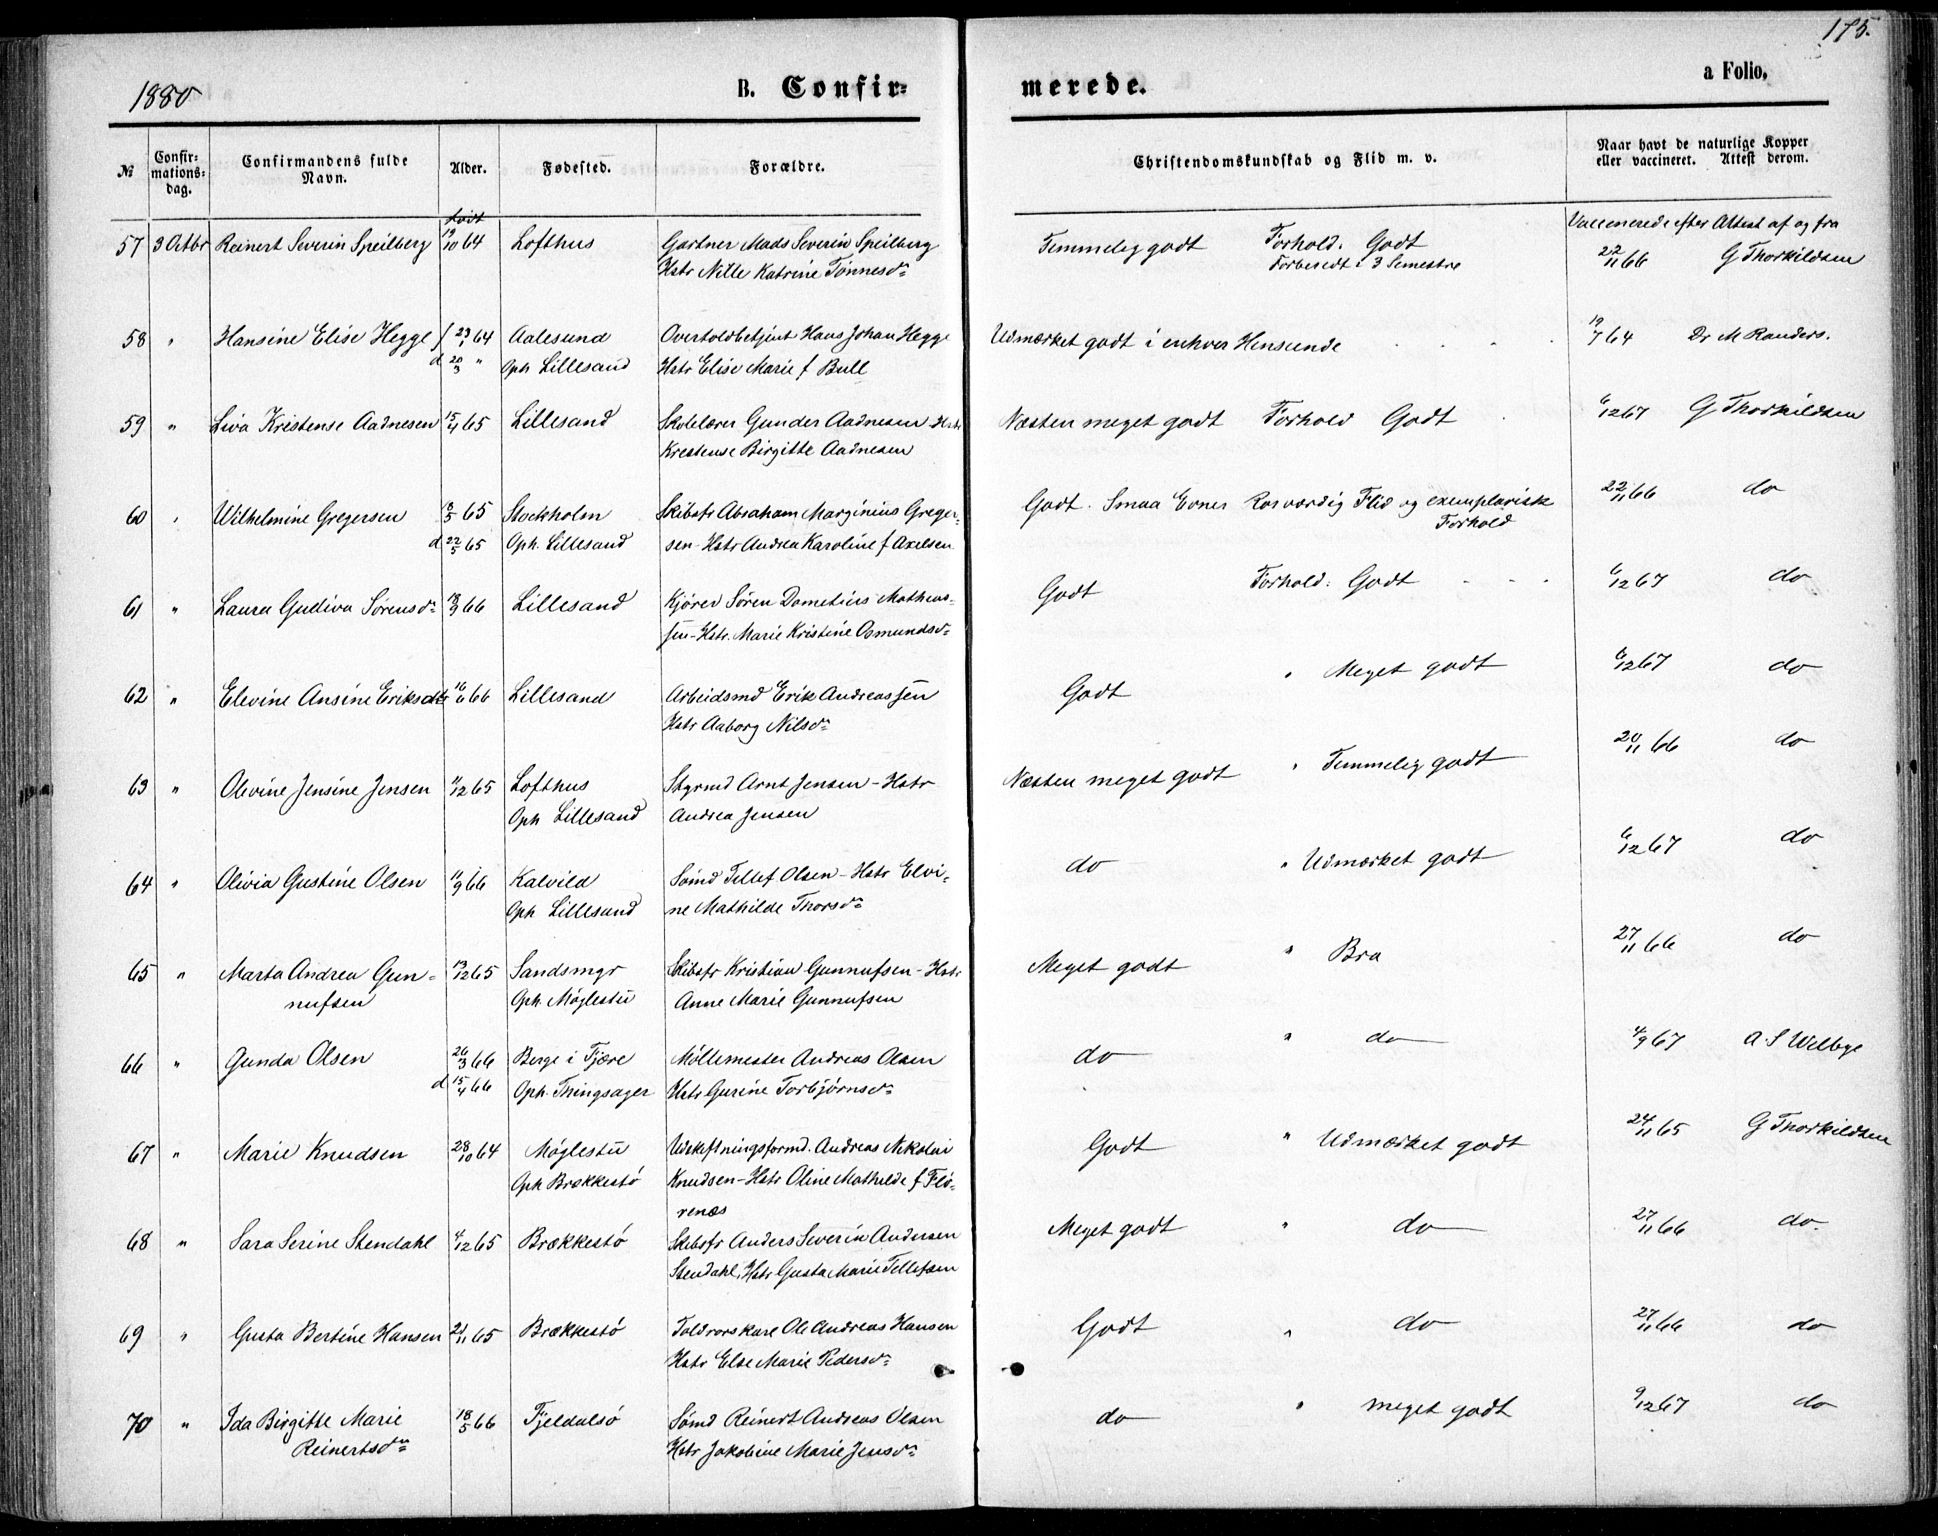 175.
1880
B. Confir=
merede.
a Folio,
№
Confir=
mations=
dag.
Confirmandens fulde
Navn.
Alder.
Fødested.
Forældre.
Christendomskundskab og Flid m. v.
Naar havt de naturlige Kopper
eller vaccineret. Attest derom.
født
Vaccinerede efter Attest af og fra
57 3 Octbr Reinert Severin Speilberg 19/10 64 Lofthus Gartner Mads Severin Speilberg Temmelig godt Forhold. Godt 22/11 66 G Thorkildsen
Hstr Nille Katrine Tønnesdr Forberedt i 3 Semestre
58 " Hansine Elise Hegge f 23/1 64 Aalesund Overtoldbetjent Hans Johan Hegge Udmærket godt i enhver Henseende 19/7 64 Dr M Randers.
d 20/3 " Oph Lillesand Hstr Elise Marie f Bull
59 " Liva Kristense Aadnesen 15/4 65 Lillesand Skolelærer Gunder Aadnesen Hstr Næsten meget godt Forhold Godt 6/12 67 G Thorkildsen
Krestense Birgitte Aadnesen
60 " Wilhelmine Gregersen 13/5 65 Stockholm Skibsfr Abraham Marginius Greger- Godt. Smaa Evner Rosværdig Flid og exemplarisk 22/11 66 do
Forhold
d 22/5 65 Oph. Lillesand sen - Hstr Andrea Karoline f Axelsen
61 " Laura Gudiva Sørensdr 18/9 66 Lillesand Kjører Søren Dometius Matheas- Godt Forhold. Godt 6/12 67 do
sen - Hstr. Marie Kristine Osmundsdr
62 " Elevine Ansine Eriksdtr 16/6 66 Lillesand Arbeidsmd Erik Andreassen Godt " Meget godt 6/12 67 do
Hstr Aaborg Nilsdr
63 " Olevine Jensine Jensen 11/12 65 Lofthus Styrmd Arnt Jensen - Hstr Næsten meget godt " Temmelig godt 20/11 66 do
Oph Lillesand Andrea Jensen
64 " Olivia Gustine Olsen 11/9 66 Kalvild Sømd Tellef Olsen - Hstr Elvi- do " Udmærket godt 6/12 67 do
Oph Lillesand ne Mathilde Thorsdr
65 " Marta Andrea Gun- 13/12 65 Sandsmyr Skibsfr Kristian Gunnufsen - Hstr Meget godt " Bra 27/11 66 do
nufsen Oph. Møglestu Anne Marie Gunnufsen
66 " Gunda Olsen 26/3 66 Berge i Fjære Møllemester Andreas Olsen do " do 4/9 67 A. S Welbye
d 15/4 66 Oph. Thingsager Hstr Gurine Torbjørnsdr
67 " Marie Knudsen 28/10 64 Møglestu Udskiftningsformd. Andreas Nikolai Godt " Udmærket godt 24/11 65 G Thorkildsen
Oph Brækkestø Knudsen - Hstr Oline Mathilde f Flø-
renæs
68 " Sara Serine Stendahl 4/12 65 Brækkestø Skibsfr Anders Severin Andersen Meget godt " do 27/11 66 do.
Stendahl, Hstr Gusta Marie Tellefsen
69 " Gusta Bertine Hansen 21/11 65 Brækkestø Toldrorskarl Ole Andreas Hansen Godt " do 27/11 66 do
Hstr Else Marie Pedersdr
70 " Ida Birgitte Marie 18/5 66 Fjeldalsø Sømd Reinert Andreas Olsen do " meget godt 9/12 67 do
Reinertsdr Hstr Jakobine Marie Jensdr